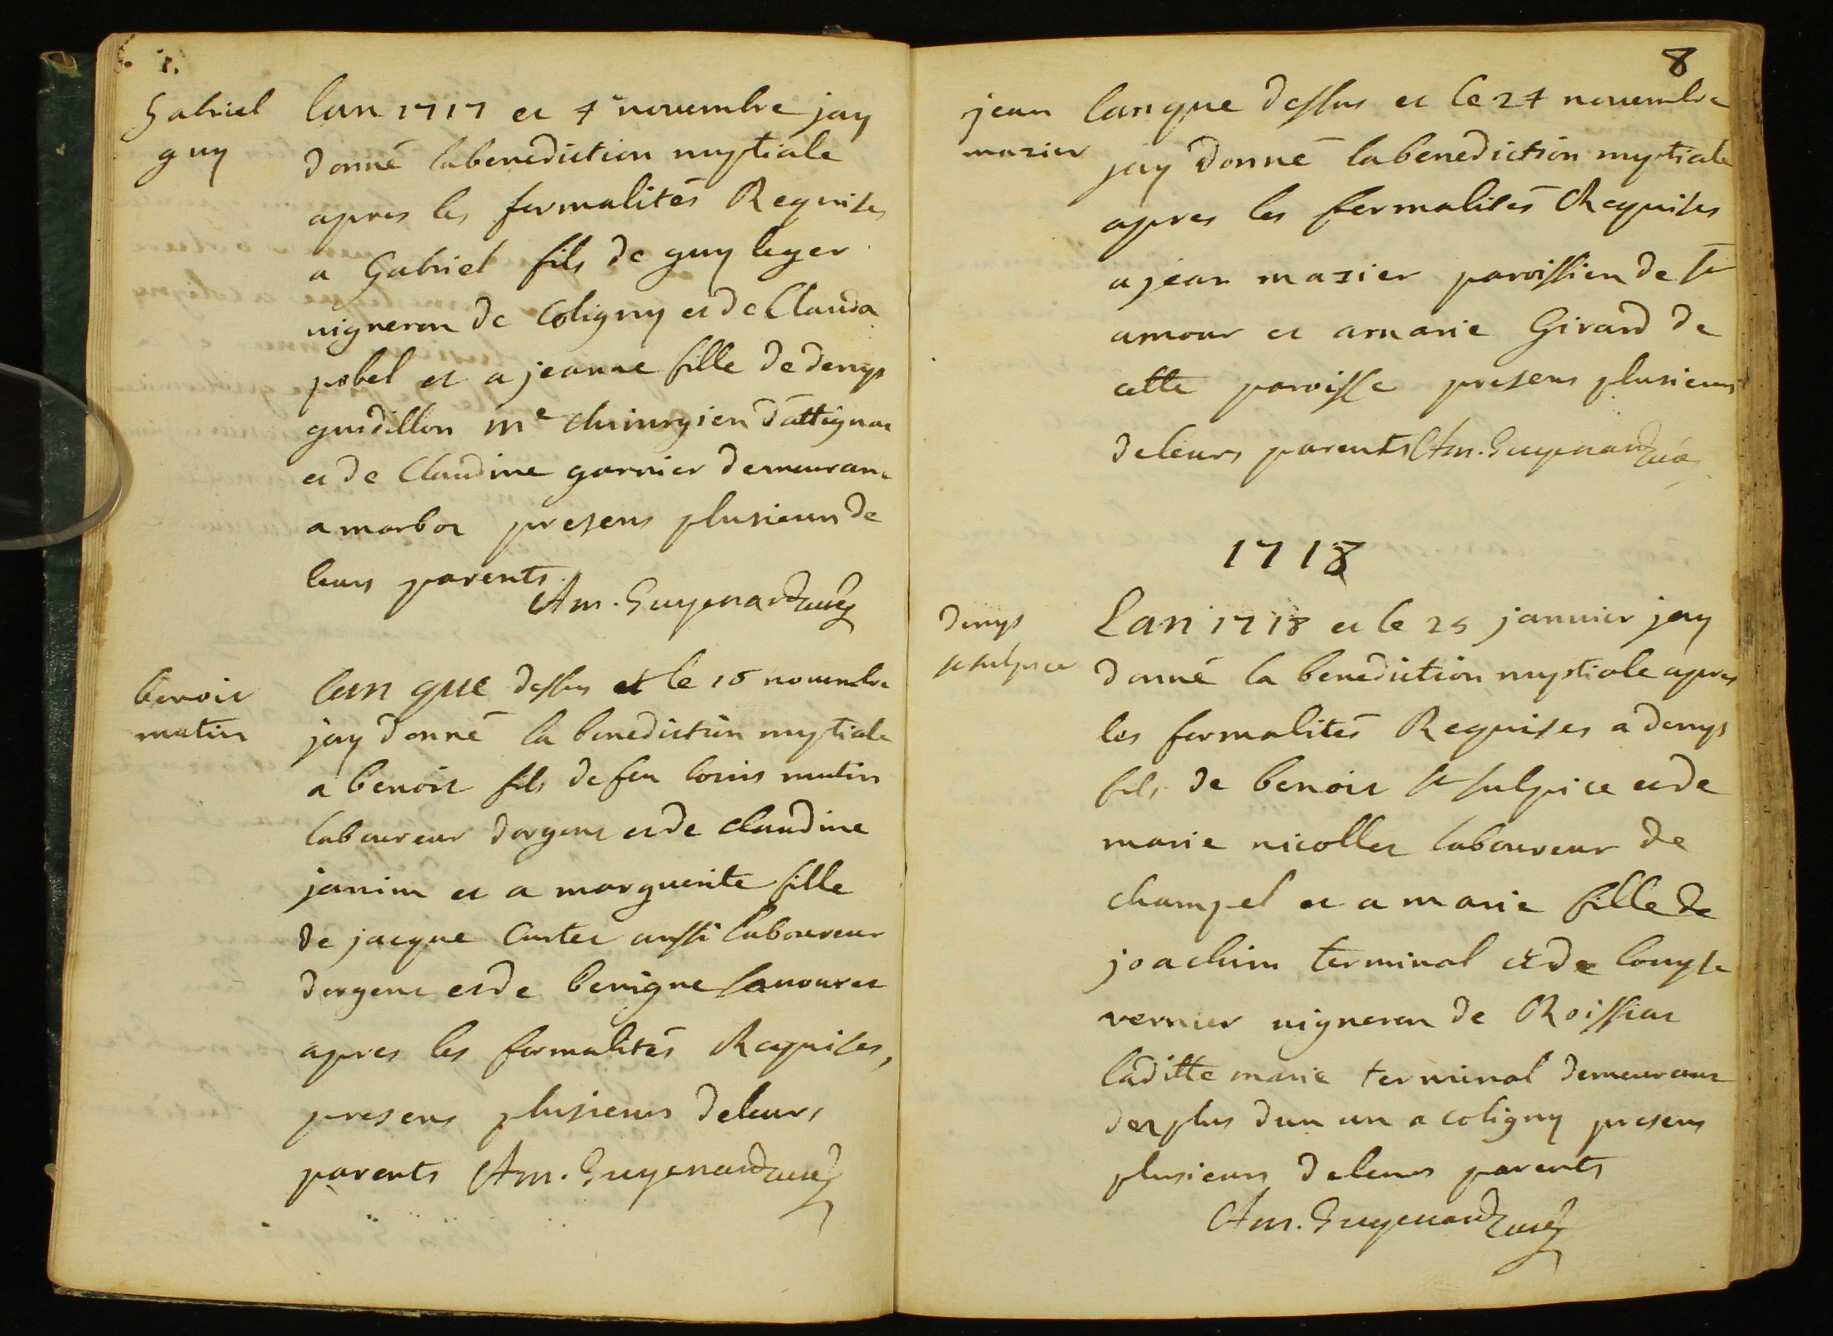 Gabriel
guy
lan 1717 et 4e novembre jay
donné la benediction nuptiale
apres les formalités Requises
a Gabriel fils de guy leger
vigneron de Coligny et de Clauda
pobel et a jeanne fille de denys
gudillon me chirurgien dattignat
et de Claudine garnier demeurant
a marboz presens plusieurs de
leurs parents.
Am. Guyenard curé
benoit
mutin
lan que dessus et le 16 novembre
jay donné la benediction nuptiale
a benoit fils de feu louis mutin
laboureur dorgent et de claudine
janim et a marguerite fille
de jacque Curtet aussi laboureur
dorgent et de benigne
apres les formalités Requises,
presens plusieurs de leurs
parents Am. Guyenard curé
8
jean
mazier
lan que dessus et le 24 novembre
jay donné la benediction nuptiale
apres les formalités Requises
a jean mazier paroissien de st
amour et a marie Girard de
cette paroisse presens plusieurs
de leurs parents Am. Guyenard curé
1718
denys
st sulpice
Lan 1718 et le 25 janvier jay
donné la benediction nuptiale apres
les formalités Requises a denys
fils de benoit st sulpice et de
marie nicollet laboureur de
champel et a marie fille de
joachim terminal et de louyse
vernier vigneron de Roissiat
laditte marie terminal demeurant
dez plus dun an a coligny presens
plusieurs de leurs parents
Am. Guyenard curé